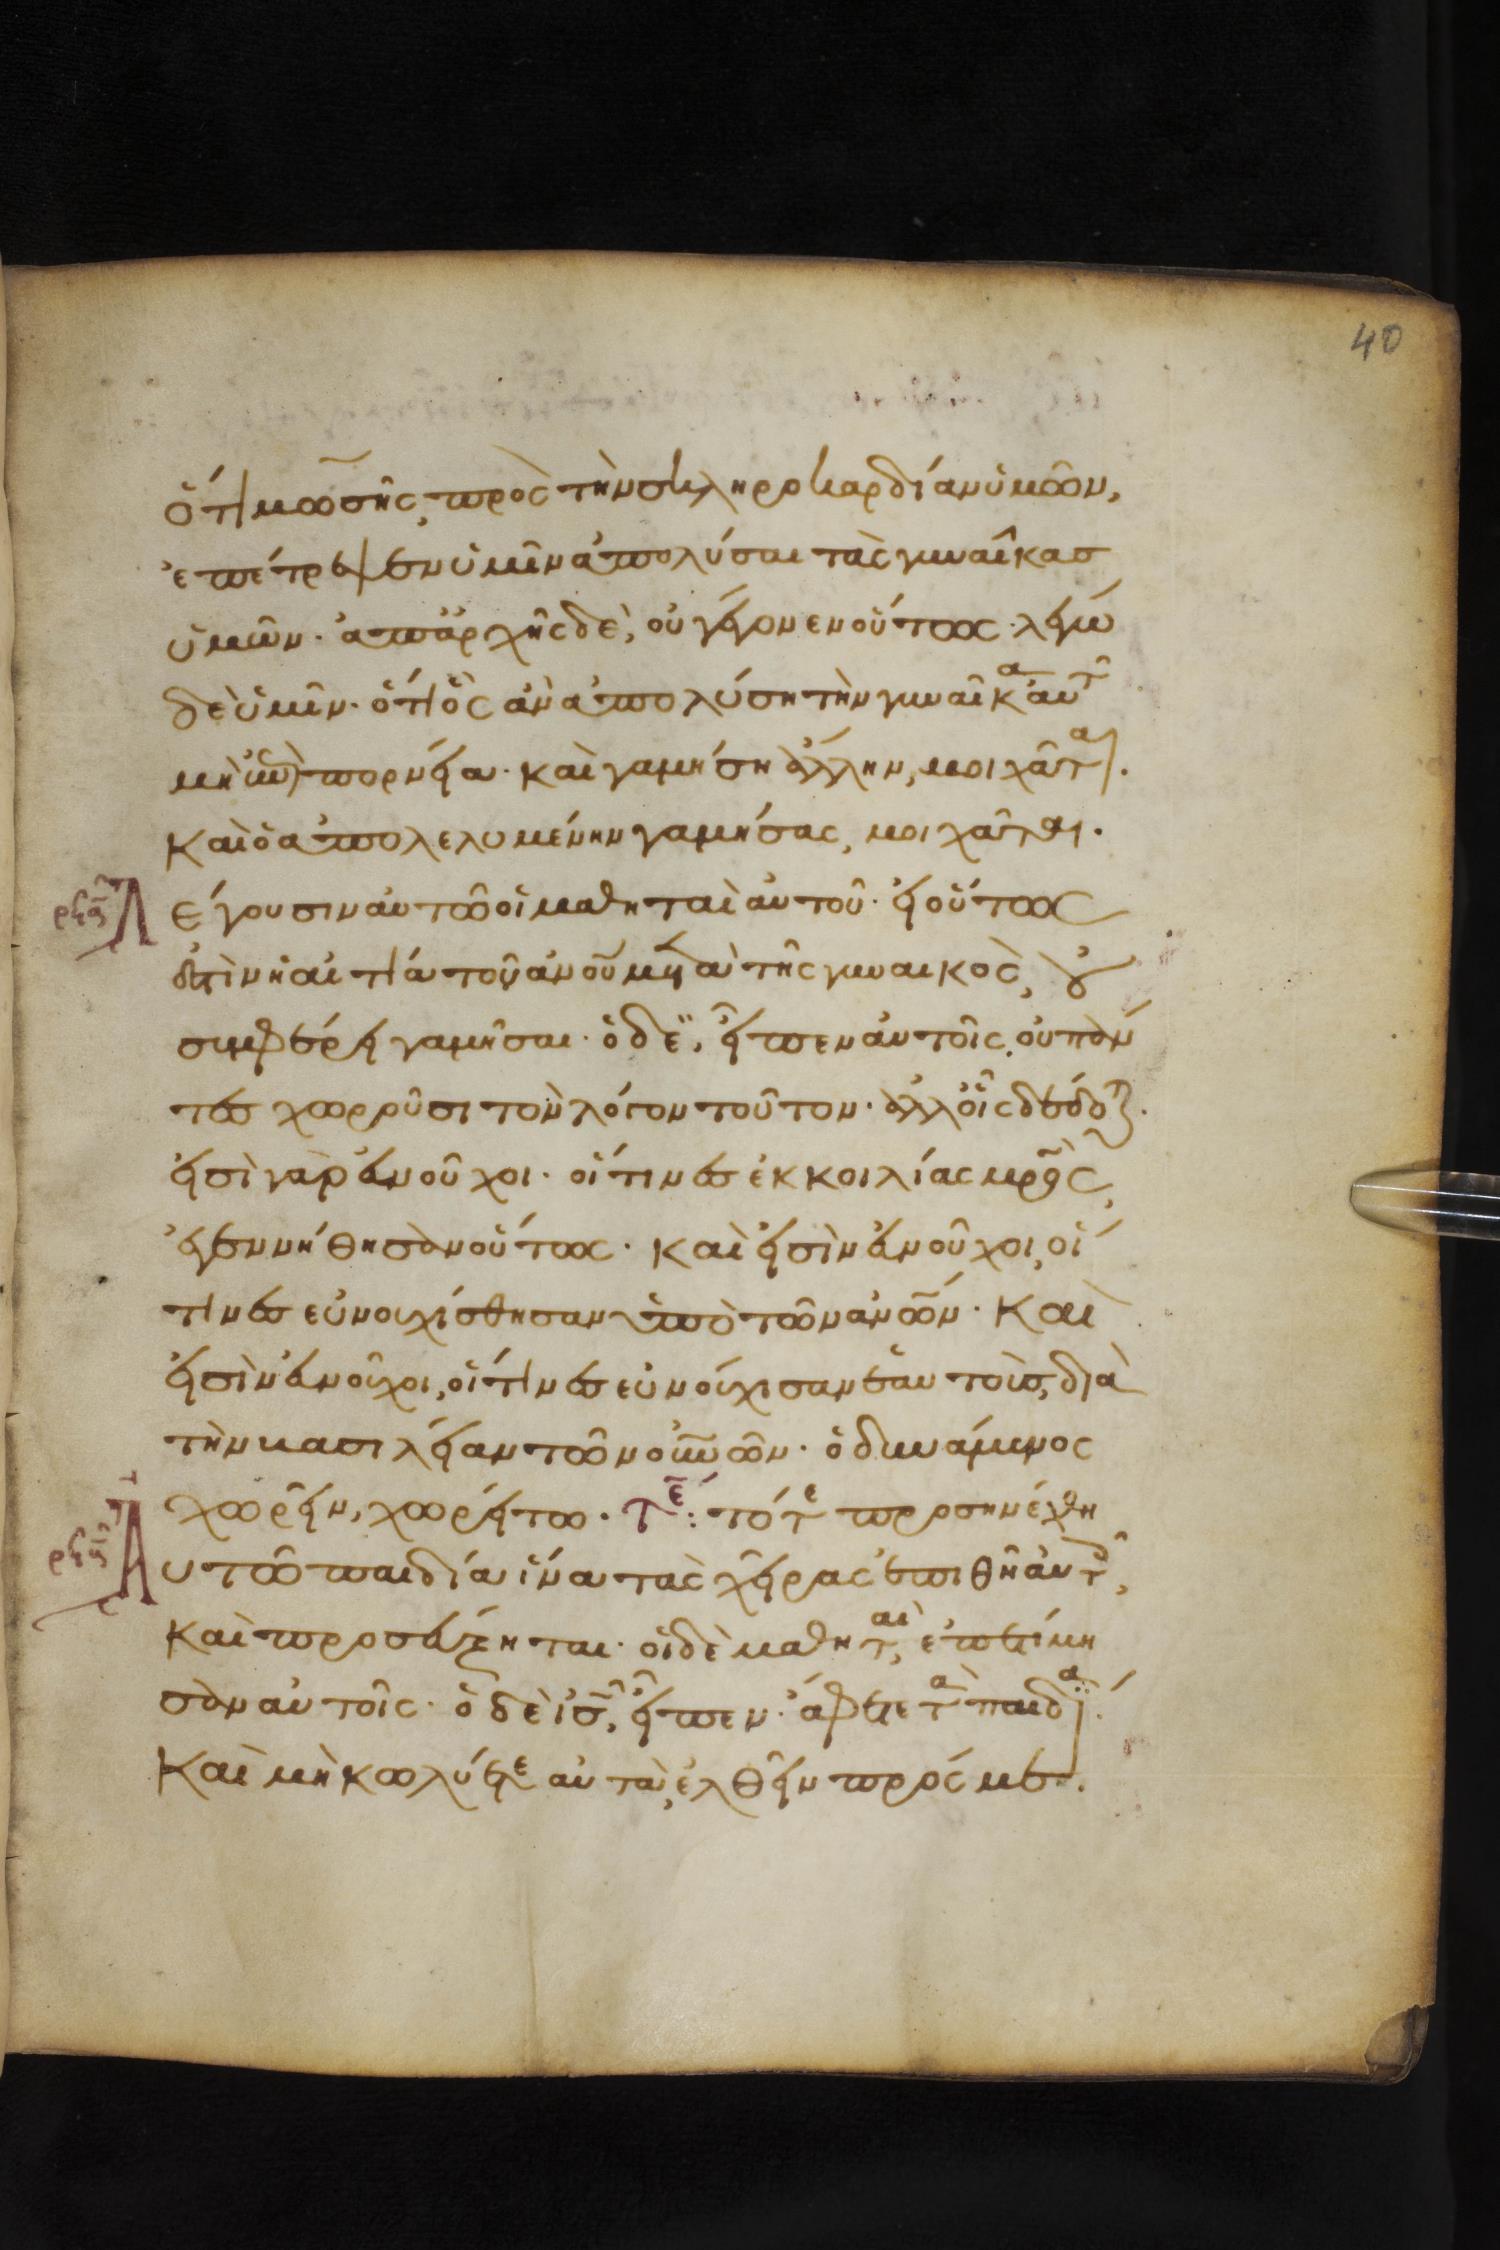 40
ὅτι μωσῆς, πρὸς τὴν σκληροκαρδίαν ὑμῶν,
ἐπέτρεψεν ὑμῖν ἀπολύσαι τὰς γυναῖκασ
ὑμῶν· ἀπ' ἀρχῆς δὲ, οὐ γέγονεν οὕτως· λέγω
δὲ ὑμῖν· ὅτι ὃς ἂν ἀπολύση τὴν γυναῖκα αὐτ
μὴ ἐπὶ πορνεία· καὶ γαμήση ἄλλην, μοιχᾶται.
καὶ ὁ ἀπολελυμένην γαμήσας, μοιχᾶται.
ρϟα Λέγουσιν αὐτῶ οἱ μαθηταὶ αὐτοῦ· εἰ οὕτως
ἐστὶν ἡ αἰτία τοῦ ἀνου μετὰ τῆς γυναικὸς, οὐ
συμφέρει γαμῆσαι· ὁ δὲ, εἶπεν αὐτοῖς, οὐ πάν
τεσ χωροῦσι τὸν λόγον τοῦτον· ἀλλ' οἷς δέδοται.
εἰσὶ γὰρ εὐνοῦχοι· οἵτινεσ ἐκ κοιλίας μρς,
ἐγεννήθησαν οὕτως· καὶ εἰσὶν εὐνοῦχοι, οἵ
τινεσ εὐνουχίσθησαν ὑπὸ τῶν ανων· καὶ
εἰσὶν εὐνοῦχοι, οἵτινεσ εὐνούχισαν ἑαυτοὺσ, διὰ
τὴν βασιλείαν τῶν οὐνων· ὁ δυνάμενος
χωρεῖν, χωρείτω. Τε: τότε προσηνέχθη
ρϟ Αυτῶ παιδία ἵνα τὰς χεῖρας ἐπιθῆ αὐτ,
καὶ προσεύξηται· οἱ δὲ μαθηταὶ, ἐπετίμη
σαν αὐτοῖς· ὁ δὲ ις, εἶπεν· ἄφετε τὰ παιδία.
καὶ μὴ κωλύετε αὐτὰ, ἐλθεῖν πρός με.